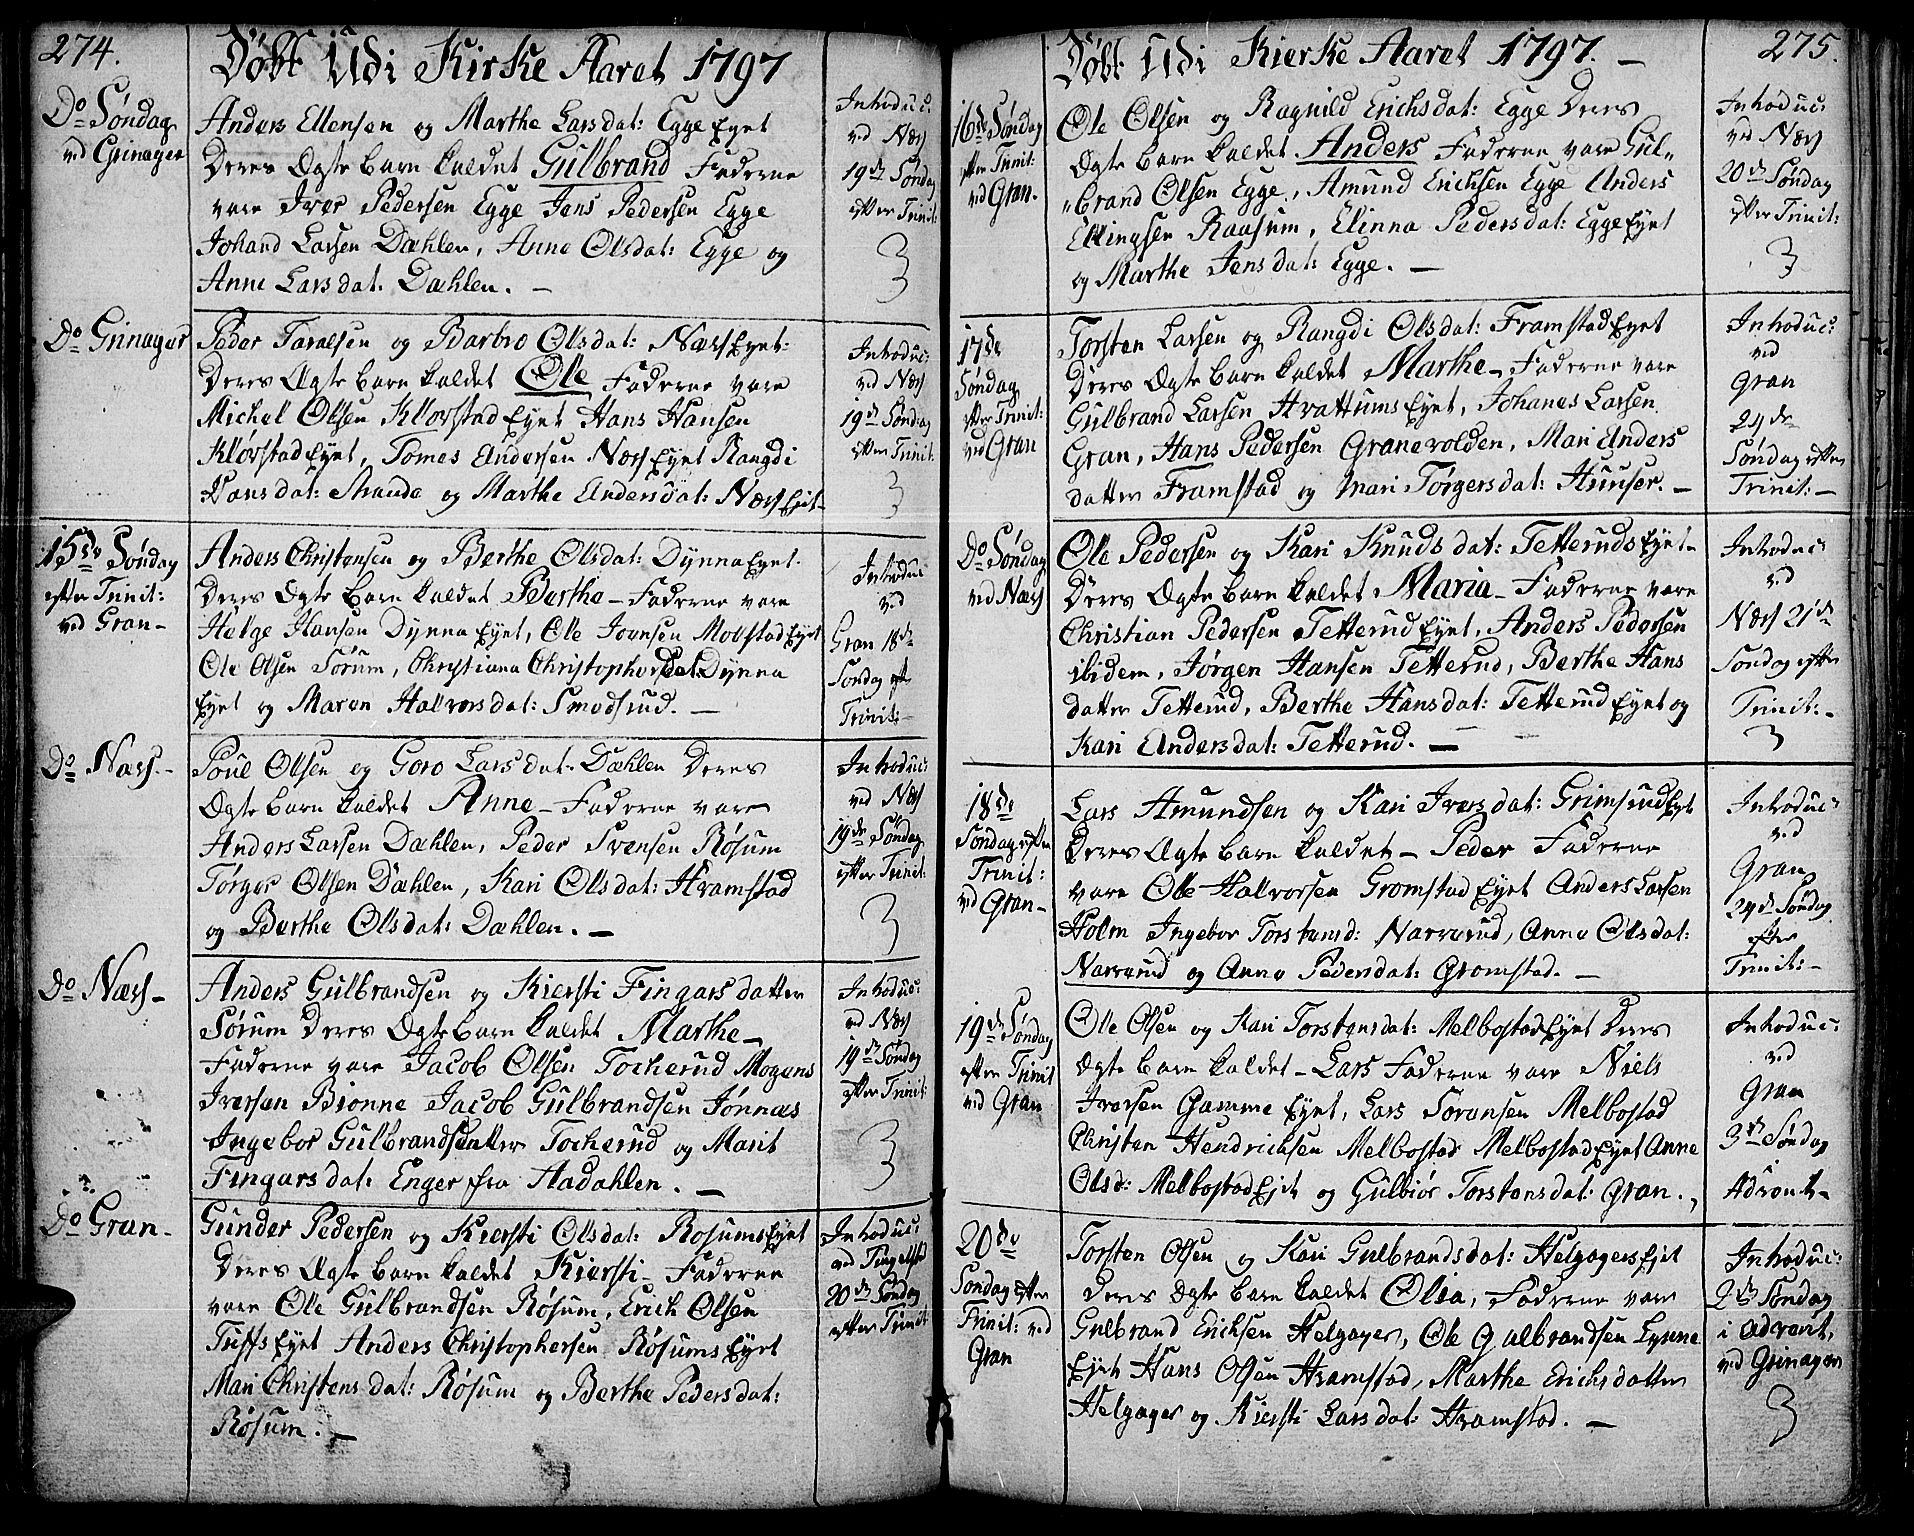 274.
Döbt Udi Kirke Aaret 1797
Do Søndag
ved Grinager
Anders Ellensen og Marthe Larsdat: Egge Eyet
Deres Ægte barn kaldet Gulbrand Faderne
vare Iver Pedersen Egge Jens Pedersen Egge
Johand Larsen Dæhlen, Anne Olsdat: Egge og
Anne Larsdat. Dæhlen. —
Introduc:
ved Næss
19de Søndag
efter Trinit:
3
Do Grinager
Peder Taralsen og Barbro Olsdat: Næss Eyet:
Deres Ægte barn kaldet Ole Faderne vare
Michel Olsen Klovstad Eyet Hans Hansen
Kløvstad Eyet, Tomes Andersen Næss Eyet Rangdi
Hansdat: Strande og Marthe Andersdat: Næss Eyet—
Introduc:
ved Næss
19de Søndag
efter Trinit:
3
15de Søndag
efter Trinit:
ved Gran—
Anders Christensen og Berthe Olsdat: Dynna Eyet.
Deres Ægte Barn kaldet Berthe— Faderne vare
Helge Hansen Dynna Eyet, Ole Iversen Molstad Eyet
Ole Olsen Sørum, Christiana Christophersdat Dynna
Eyet og Maren Halvorsdat: Smedsrud. —
Introduc
ved
Gran 18de
Søndag eft
Trinit:—
Do Næss.—
Poul Olsen og Goro Larsdat. Dæhlen Deres
Ægte barn kaldet Anne— Faderne vare
Anders Larsen Dæhlen, Peder Svensen Røsum
Tørger Olsen Dæhlen, Kari Olsdat: Hvamstad
og Berthe Olsdat: Dæhlen. —
Introduc:
ved Næss
19de Søndag
efter Trinit:
3
Do Næss—
Anders Gulbrandsen og Kiersti Fingarsdatter
Sørum Deres Ægte barn kaldet Marthe—
Faderne vare Jacob Olsen Tocherud Mogens
Iversen Bionne Jacob Gulbrandsen Jønnes
Ingebor Gulbrandsdatter Tocherud og Marit
Fingarsdat: Enger fra Aadahlen. —
Introduc:
ved Næss
19de Søndag
efter Trinit:
3
Do Gran—
Gunder Pedersen og Kiersti Olsdat: Rosums Eyet
Deres Ægte barn kaldet Kiersti— Faderne
vare Ole Gulbrandsen Røsum, Erich Olsen
Tuffs Eyet Anders Christophersen Røsums Eyet
Mari Christensdat: Røsum og Berthe Pedersdat:
Røsum. —
Introduc:
ved Tingelstad
20de Søndag
efter Trinit
Döbt Udi Kierke Aaret 1797. —
275.
16de Søndag
efter Trinit:
ved Gran.
Ole Olsen og Ragnild Erichsdat: Egge Deres
Ægte barn kaldet Anders Faderne vare Gul„
„brand Olsen Egge, Amund Erichsen Egge Anders
Ellingsen Raasum, Elinna Pedersdat: Egge Eyet
og Marthe Jensdat: Egge. —
Introduc:
ved Næss
20de Søndag
efter Trinit:
3
17de
Søndag
efter Trinit:
ved Gran
Torsten Larsen og Rangdi Olsdat: Framstad Eyet
Deres Ægte barn kaldet Marthe— Faderne vare
Gulbrand Larsen Hvattums Eyet, Johanes Larsen
Gran, Hans Pedersen Granevolden, Mari Anders
datter Framstad og Mari Tørgersdat: Hunser. —
Introduc:
ved
Gran
24de
Søndag efter
Trinit:—
Do Søndag
ved Næss
Ole Pedersen og Kari Knudsdat: Tetteruds Eyet—
Deres Ægte barn kaldet Maria— Faderne vare
Christian Pedersen Tetterud Eyet, Anders Pedersen
ibidem, Jørgen Hansen Tetterud, Berthe Hans
datter Tetterud, Berthe Hansdat: Tetterud Eyet og
Kari Andersdat: Tetterud. —
Introduc:
ved
Næss 21de
Søndag efter
Trinit:—
3
18de
Søndag efter
Trinit:
ved Gran—
Lars Amundsen og Kari Iversdat: Grimsrud Eyet
Deres Ægte barn kaldet— Peder Faderne
vare Ole Halvorsen Gromstad Eyet Anders Larsen
Holm Ingebor Torstensd: Narverud, Anne Olsdat:
Narverud og Anne Pedersdat: Gromstad. —
Introduc:
ved
Gran
24de Søndag
efter
Trinit:—
19de Søndag
efter Trinit
ved Gran
Ole Olsen og Kari Torstensdat: Melbostad Eyet Deres
Ægte barn kaldet— Lars Faderne vare Niels
Iversen Gamme Eyet, Lars Sorensen Melbostad
Christen Hendrichsen Melbostad Melbostad Eyet Anne
Olsd: Melbostad Ejet og Gulbiør Torstensdat: Gran.,
Introduc:
ved
Gran
3de Søndag
Advent—
20de
Søndag efter
Trinit: ved
Gran
Torsten Olsen og Kari Gulbrandsdat: Helgagers Ejet
Deres Ægte barn kaldet Olia, Faderne vare
Gulbrand Erichsen Helgager, Ole Gulbrandsen Lynne
Eyet Hans Olsen Hvamstad, Marthe Erichsdatter
Helgager og Kiersti Larsdat: Hvamstad. —
Introduc:
2de Søndag
i Advent,
ved Grinager
3